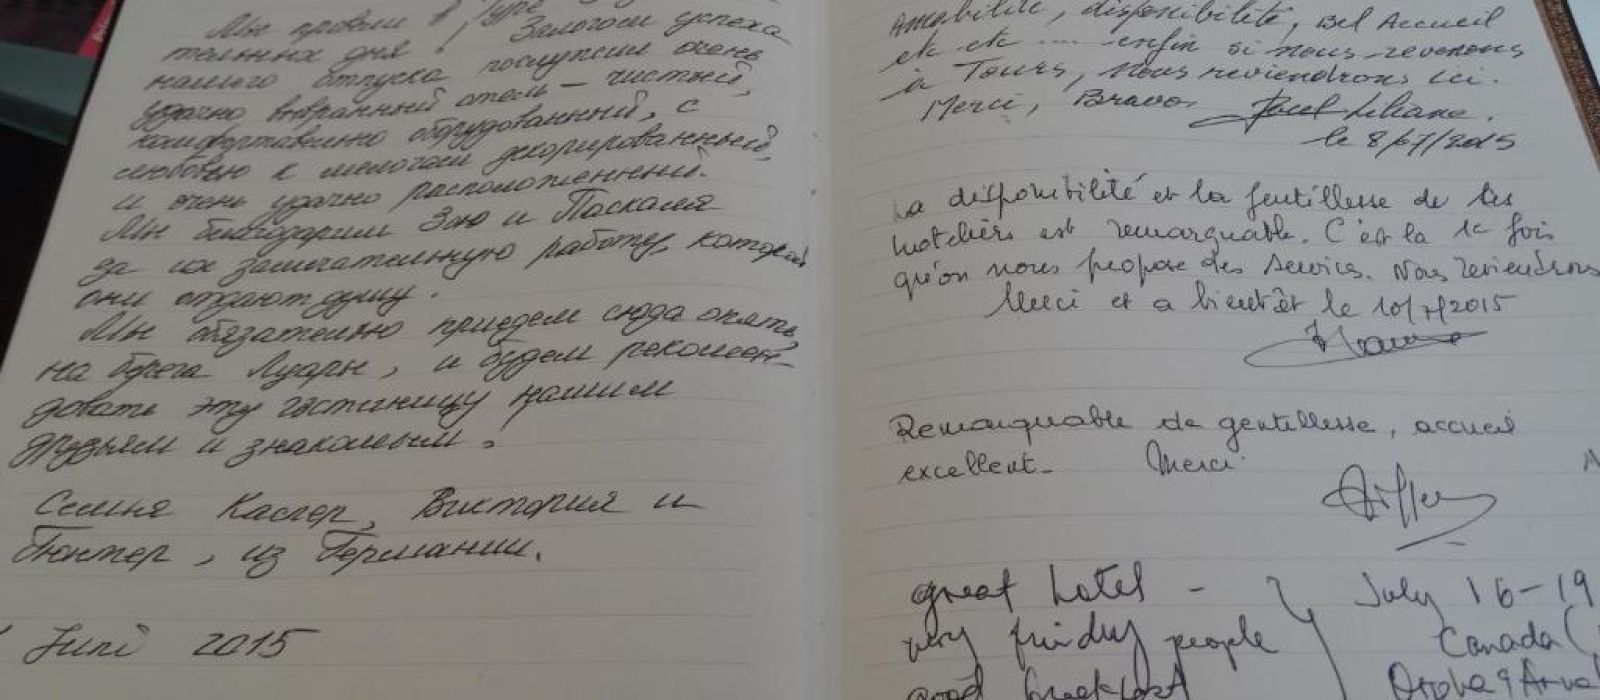 Мы провели в Туре
тельных дня. Залогом успеха
нашего отпуска послужил очень
удачно выбранный отель – чистый,
комфортабельно оборудованный, с
любовью к мелочам декорированный,
и очень удачно расположенный.
Мы благодарим Зою и Паскаля
за их замечательную работу, которой
они отдают душу.
Мы обязательно приедем сюда опять,
на берега Луары, и будем рекомен-
довать эту гостиницу нашим
друзьям и знакомым.
Семья Каспер, Виктория и
Гюнтер, из Германии.
Juni 2015
Amabilité, disponibilité, Bel Accueil
etc etc .... enfin si nous revenons
à Tours, nous reviendrons ici.
Merci, Bravo, Liliane.
le 8/07/2015
La disponibilité et la gentillesse de les
hôteliers est remarquable. C'est la 1e fois
qu'on nous propose des services. Nous reviendrons
Merci et a bientôt le 10/7/2015
Remarquable de gentillesse, accueil
excellent. Merci.
great hotel - July 16-19
very friendly people Canada (
good breakfast